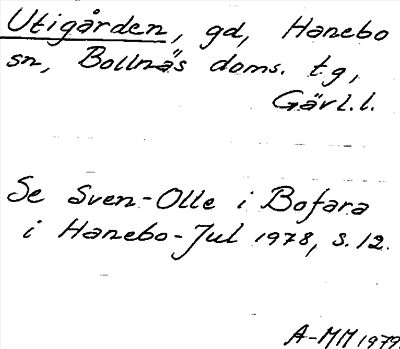 Utigården, gd, Hanebo
sn, Bollnäs doms. t.g,
Gävl.l.
Se Sven-Olle i Bofara
i Hanebo-Jul 1978, s.12.
A-MM 1979.